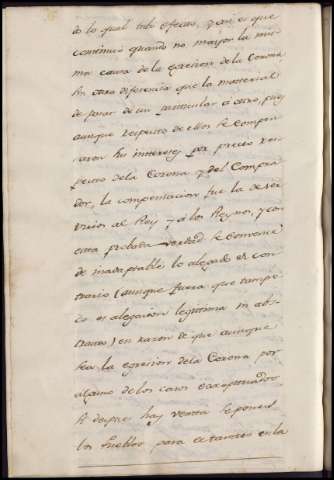 do lo qual tubo efecto, y assi es que
continuó quando no mayor la mis-
ma causa de la egresion de la Corona
sin otra diferencia que la material
de pasar de un particular a otro, pues
aunque respecto de ellos se compen-
saron sus intereses por precio res-
pecto dela Corona y del Compra-
dor, la compensacion fue la de ser-
vicios al Rey, y á los Reynos, y con
esta probada verdad se convence
de inadaptable lo alegado en con-
trario (aunque fuera que tampo-
co es alegacion legitima in abs-
tracto) en razon de que aunque
sea la egresion dela Corona por
alguno de los casos exceptuados
si despues hay venta se ponen
los Pueblos para el tanteo en la